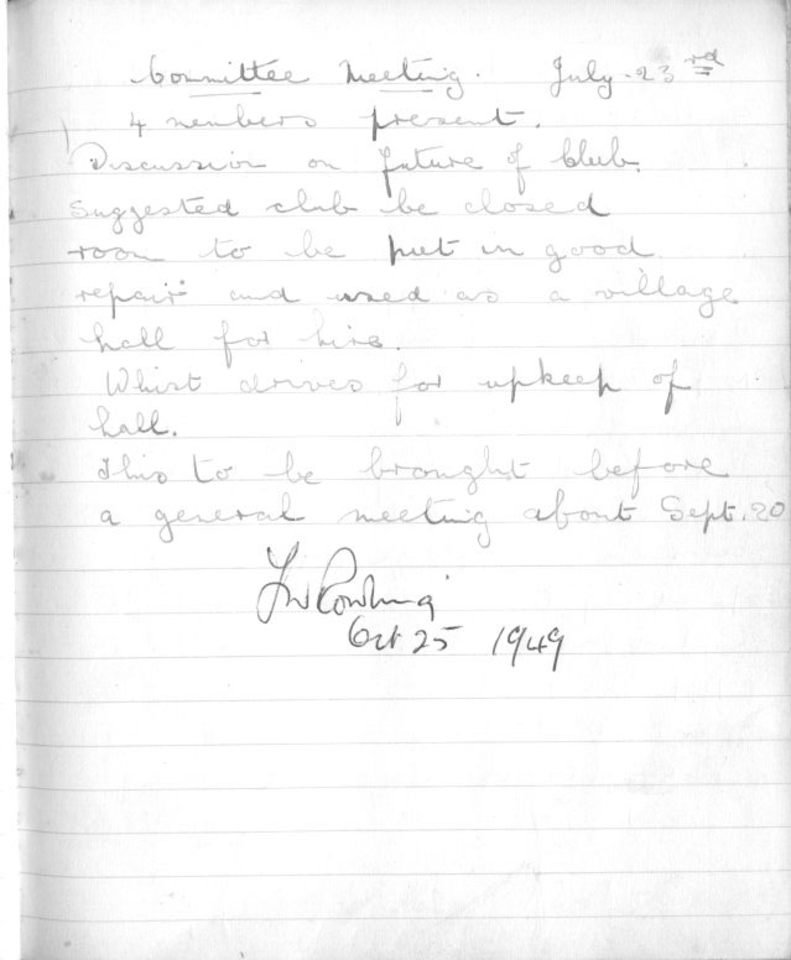 Committee Meeting. July 23rd
4 members present.
Discussion on future of Club.
Suggested club be closed
room to be put in good
repair and used as a village
hall for hire.
Whist drives for upkeep of
hall.
This to be brought before
a general meeting about Sept. 20
Oct 25 1949